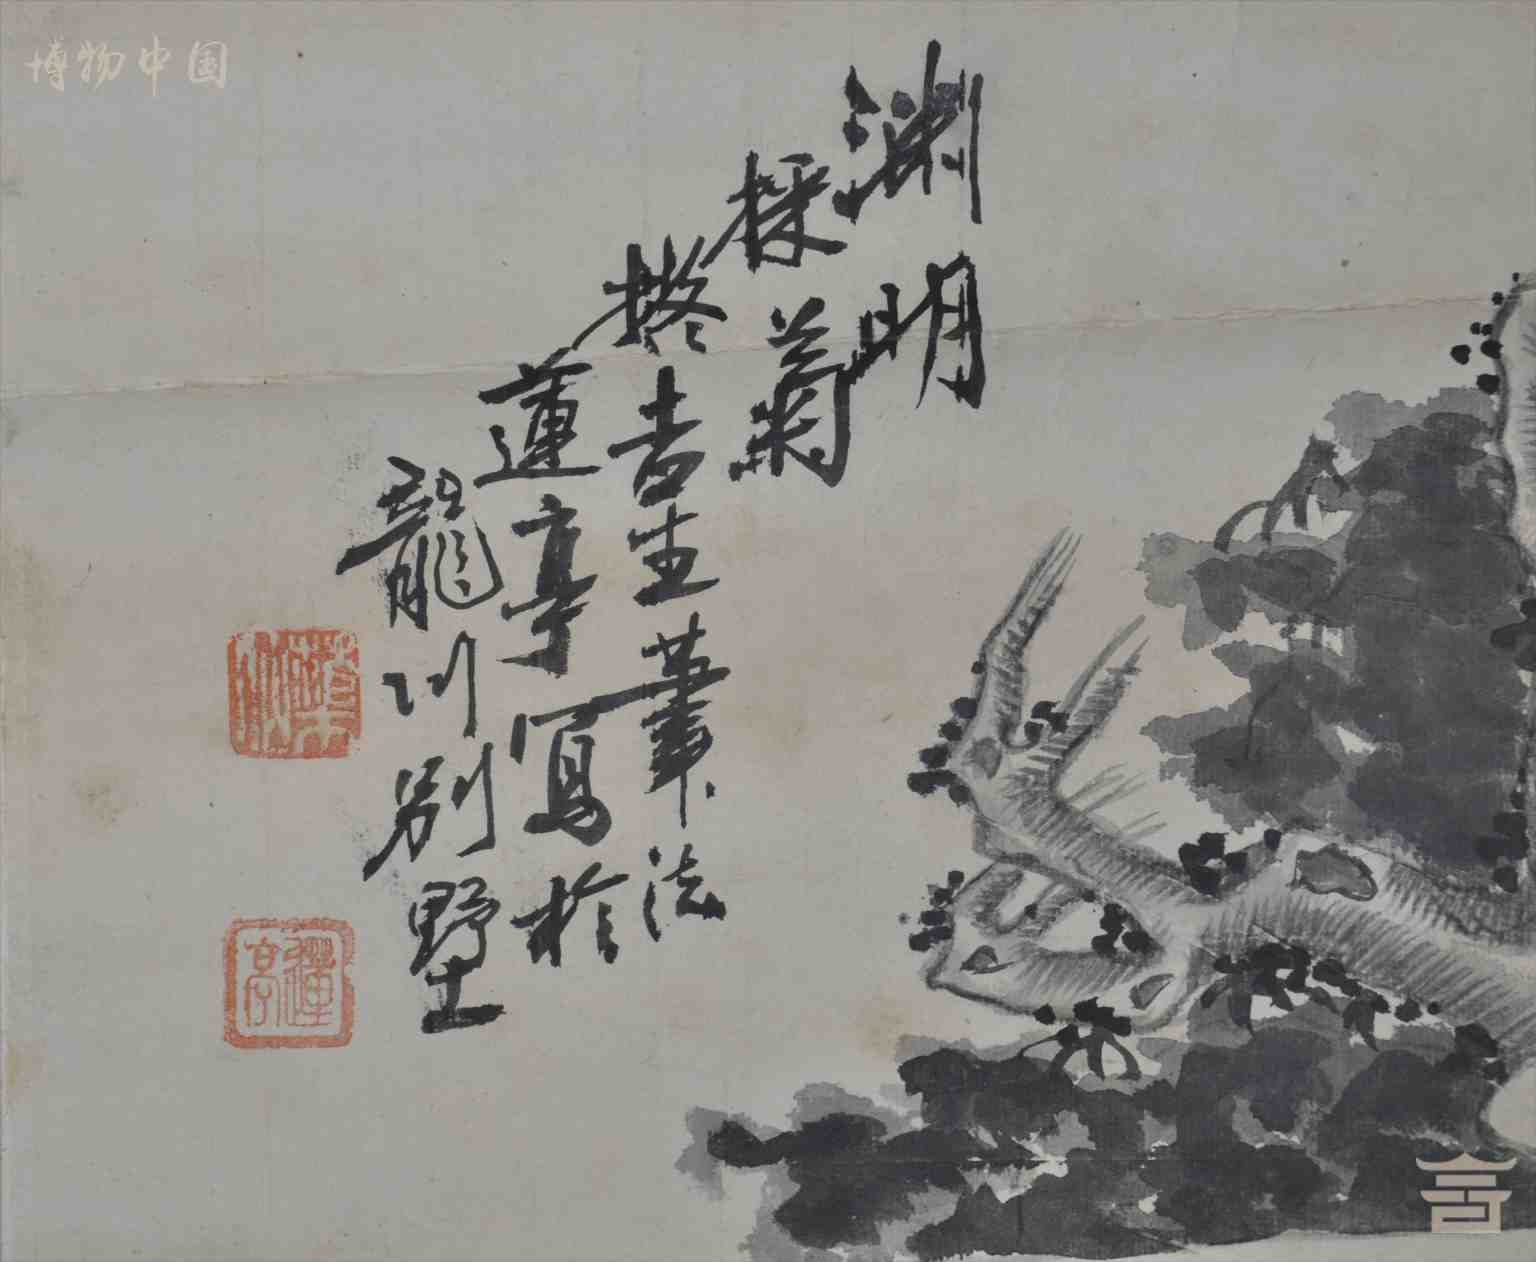 博物中国
渊明
採菊
擬吉生筆法
蓮亭寫於
龍川別墅
蓮亭